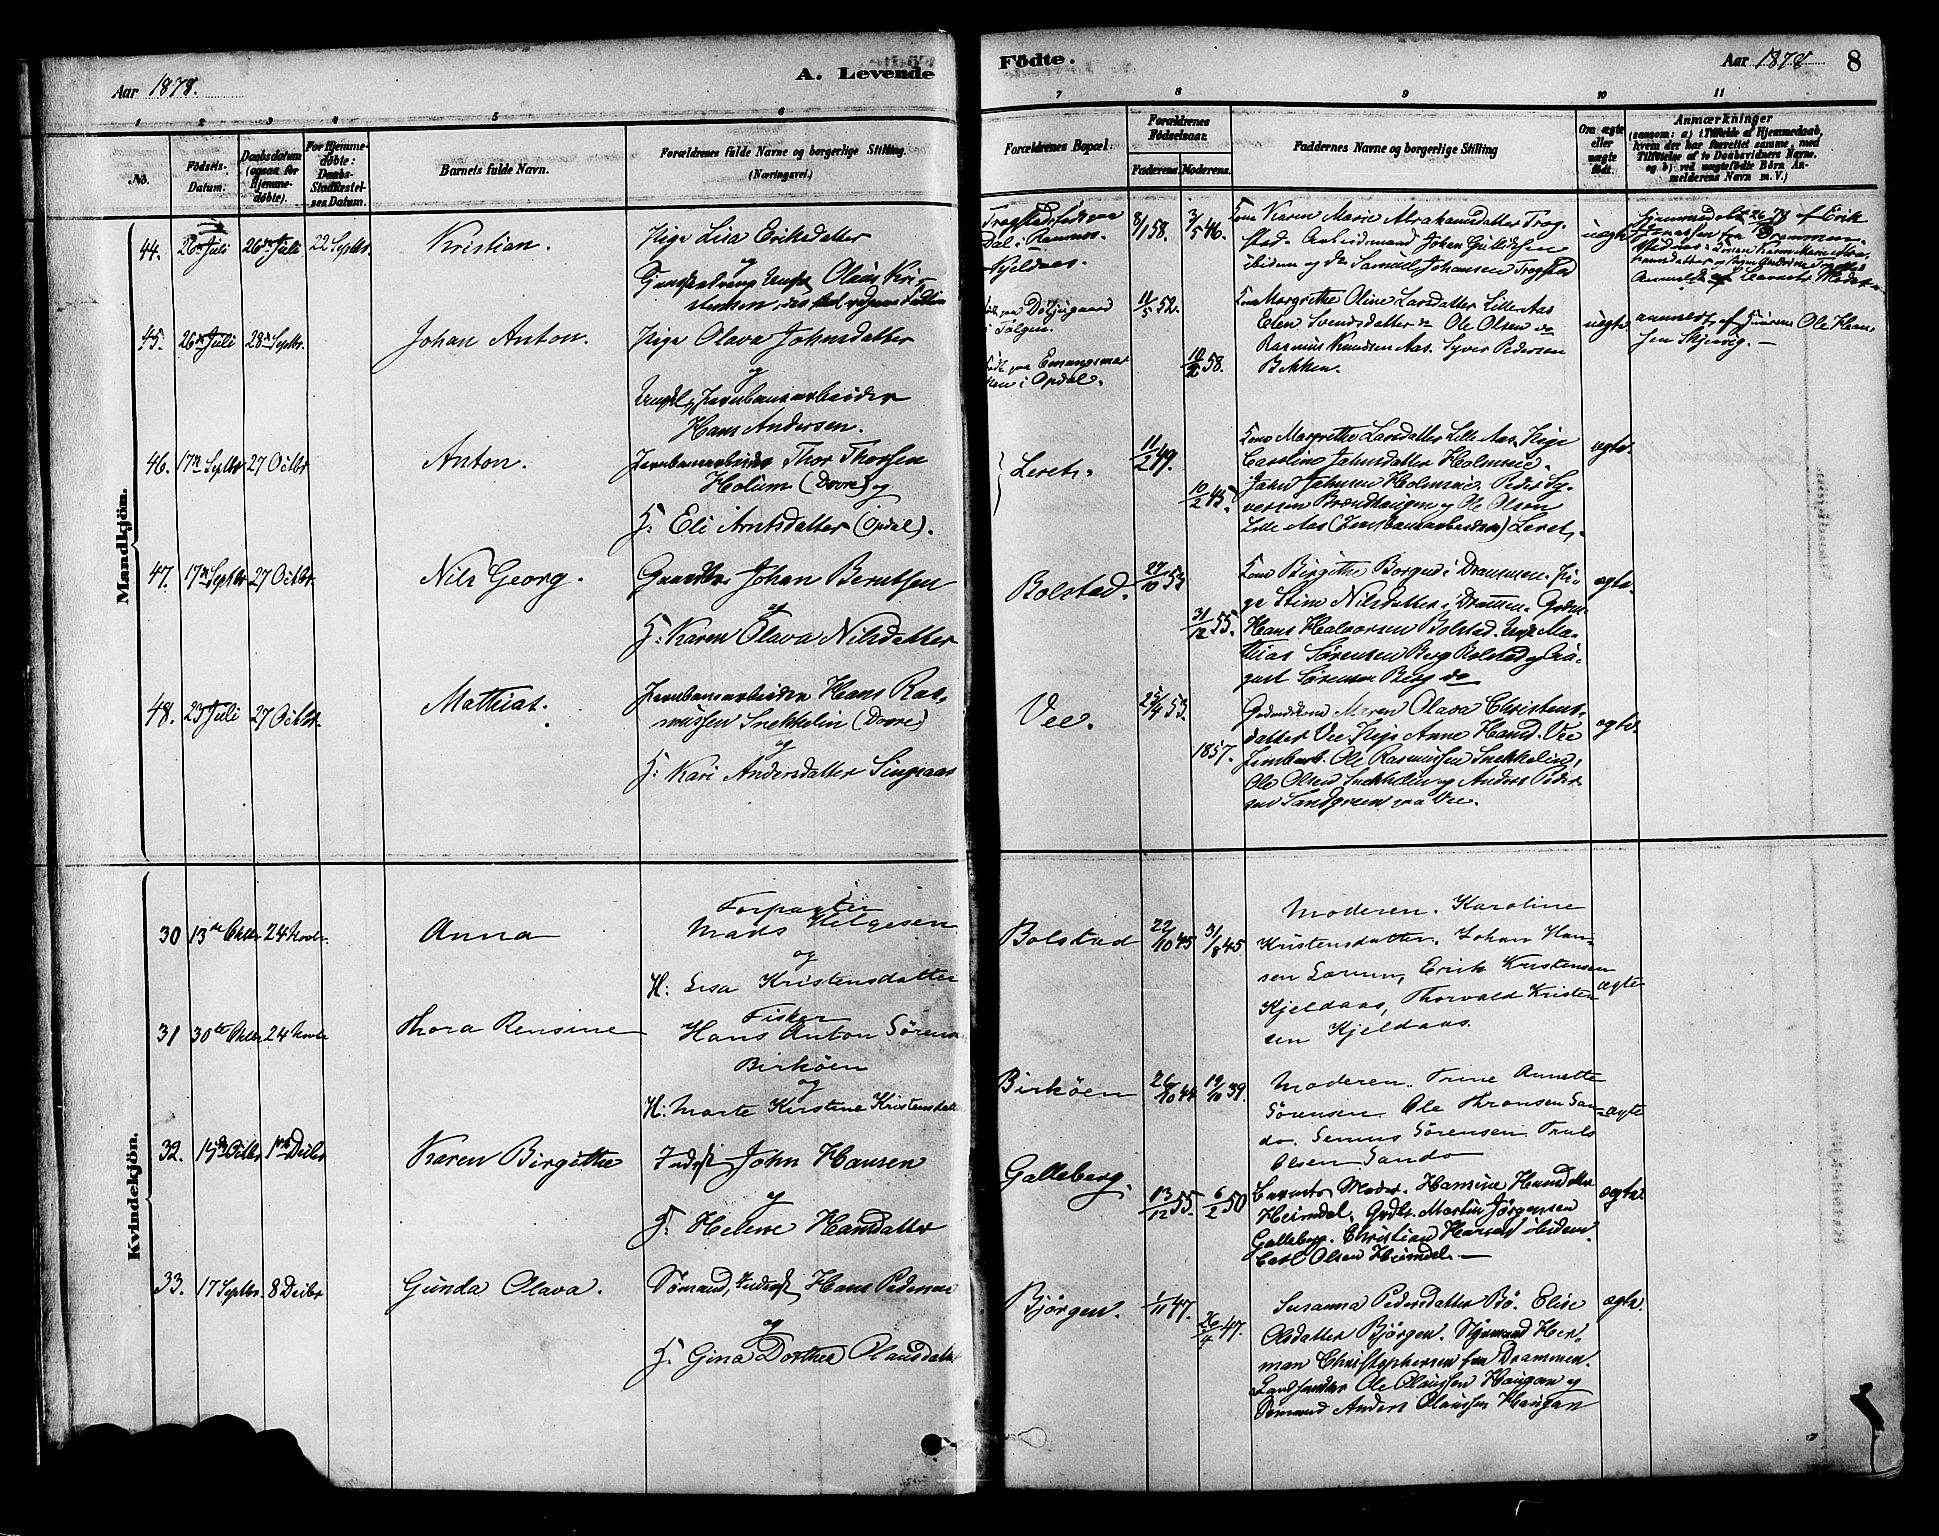 Aar 1878.
A. Levende
Födte.
Aar 1878
8
1 2 3 4 5 6
7 8 9 10 11
No.
Födsels-
Datum.
Daabsdatum
(ogsaa for
Hjemme-
døbte).
For Hjemme-
døbte:
Daabs-
Stadfæstel-
sens Datum.
Barnets fulde Navn.
Forældrenes fulde Navne og borgerlige Stilling.
(Næringsvei.)
Forældrenes Bopæl.
Forældrenes
Födselsaar.
Faderens.
Moderens.
Faddernes Navne og borgerlige Stilling
Om ægte
eller
uægte
født.
Anmærkninger
(saasom: a) i Tilfælde af Hjemmedaab,
hvem der har forrettet samme, med
Tilføielse af to Daabsvidners Navne,
og b) ved uægtefødte Børn An-
melderens Navn m. V.)
Mandkjön.
44. 26 Juli 26 Juli 22 Septbr
Kristian.
Pige Lisa Eriksdatter
og
Ungk. Olaus Kri-
8/1 58. 3/5 46.
Kone Karen Marie Abrahamsdatter Trog-
stad. Arbeidsmand Johan
ibidem og do Samuel Johansen Trogstad
uægte
45. 26 Juli 28 Septbr.
Johan Anton.
Pige Olava Johnsdatter
og
Ungk. Jernbanearbeider
Hans Andersen.
i Tolgen.
i Opdal.
11/5 52.
58.
Kone Margrethe Oline Larsdatter Lille Aas
Elen Svendsdatter do Ole Olsen do
Rasmus Knudsen Aas. Syver Pedersen
Bekken.
uægte.
anmeldt af Ole Han-
sen
46. 17 Septbr 27 Octbr
Anton.
Jernbanearbeider Thor Thorsen
Holum (Dovre) og
H. Eli Arntsdatter (Opdal).
Leret.
11/2 49.
10/2 43.
Kone Margrethe Larsdatter Lille Aas. Pige
Caroline Jahnsdatter Holmsne.
Jahn Jahnsen Holmsne. Peder Sy-
versen Brændhaugen og Ole Olsen
Lille Aas (Jernbanearbeidere) Leret.
ægte.
47. 17 Septbr 27 Octbr.
Nils Georg.
Gaardbr. Johan Berntsen
og
H. Karen Olava Nilsdatter
Bolstad.
27/10 53
31/12 55.
Kone Birgithe Borgen i Drammen. Pi-
ge Stine Nilsdatter i Drammen. Grdm.
Hans Halvorsen Bolstad. Ungk. Ma-
thias Sørensen Berg Bolstad og Au-
gust Sørensen Berg do
ægte.
48. 23 Juli 27 Octbr.
Mathias.
Jernbanearbeider Hans Ras-
mussen Snekkelin (Dovre)
og
H. Kari Andersdatter Singsaas
Vee.
25/4 53.
1857.
Gaardmdskone Maren Olava Christens-
datter Vee Pige Anne Hansd. Vee
Jernbarb. Ole Rasmussen Snekkelin,
Ole Olsen Snekkelin og Anders Peder-
sen Sandgreen paa Vee.
ægte.
Kvindekjön.
30 13de Oktbr 24 Novbr
Anna
Forpagter
Mads Helgesen
og
H: Lisa Kristensdatter
Bolstad
22/10 45
31/8 45
Moderen. Karoline
Kristensdatter. Johan Han-
sen Lorum, Erik Kristensen
Kjeldaas, Thorvald Kristen-
sen Kjeldaas.
ægte
31 30te Oktbr 24 Novbr
Thora Rensine
Fisker
Hans Anton Sörens
Birköen
og
H: Marte Kirstine Kristensdatt
Birköen
26/10 44
19/10 39.
Moderen. Trine Annette
Sörensen. Ole Thronsen San-
do. Senius Sörensen. Truls
Olsen Sando
ægte
32. Octbr 1ste Decbr
Karen Birgithe
Inderst John Hansen
og
H. Helene Hansdatter
Galleberg.
13/12 55.
6/2 50
Barnets Moder. Hansine Hansdatter
Heimdal. Grdbr. Martin Jørgensen
Galleberg. Christian Hansen ibidem.
Carl Olsen Heimdal.
ægte
33. 17 Septbr. 8 Decbr
Gunda Olava.
Sømand, Inderst Hans Pedersen
og
H. Gina Dorthea Olausdatt
Bjørgen.
1/11 47.
26/4 47.
Susanna Pedersdatter Bø. Elise
Olsdatter Bjørgen. Styrmand Her-
man Christophersen fra Drammen.
Ole Olaussen Haugan og
Sømand Anders Olaussen Haugan
ægte.